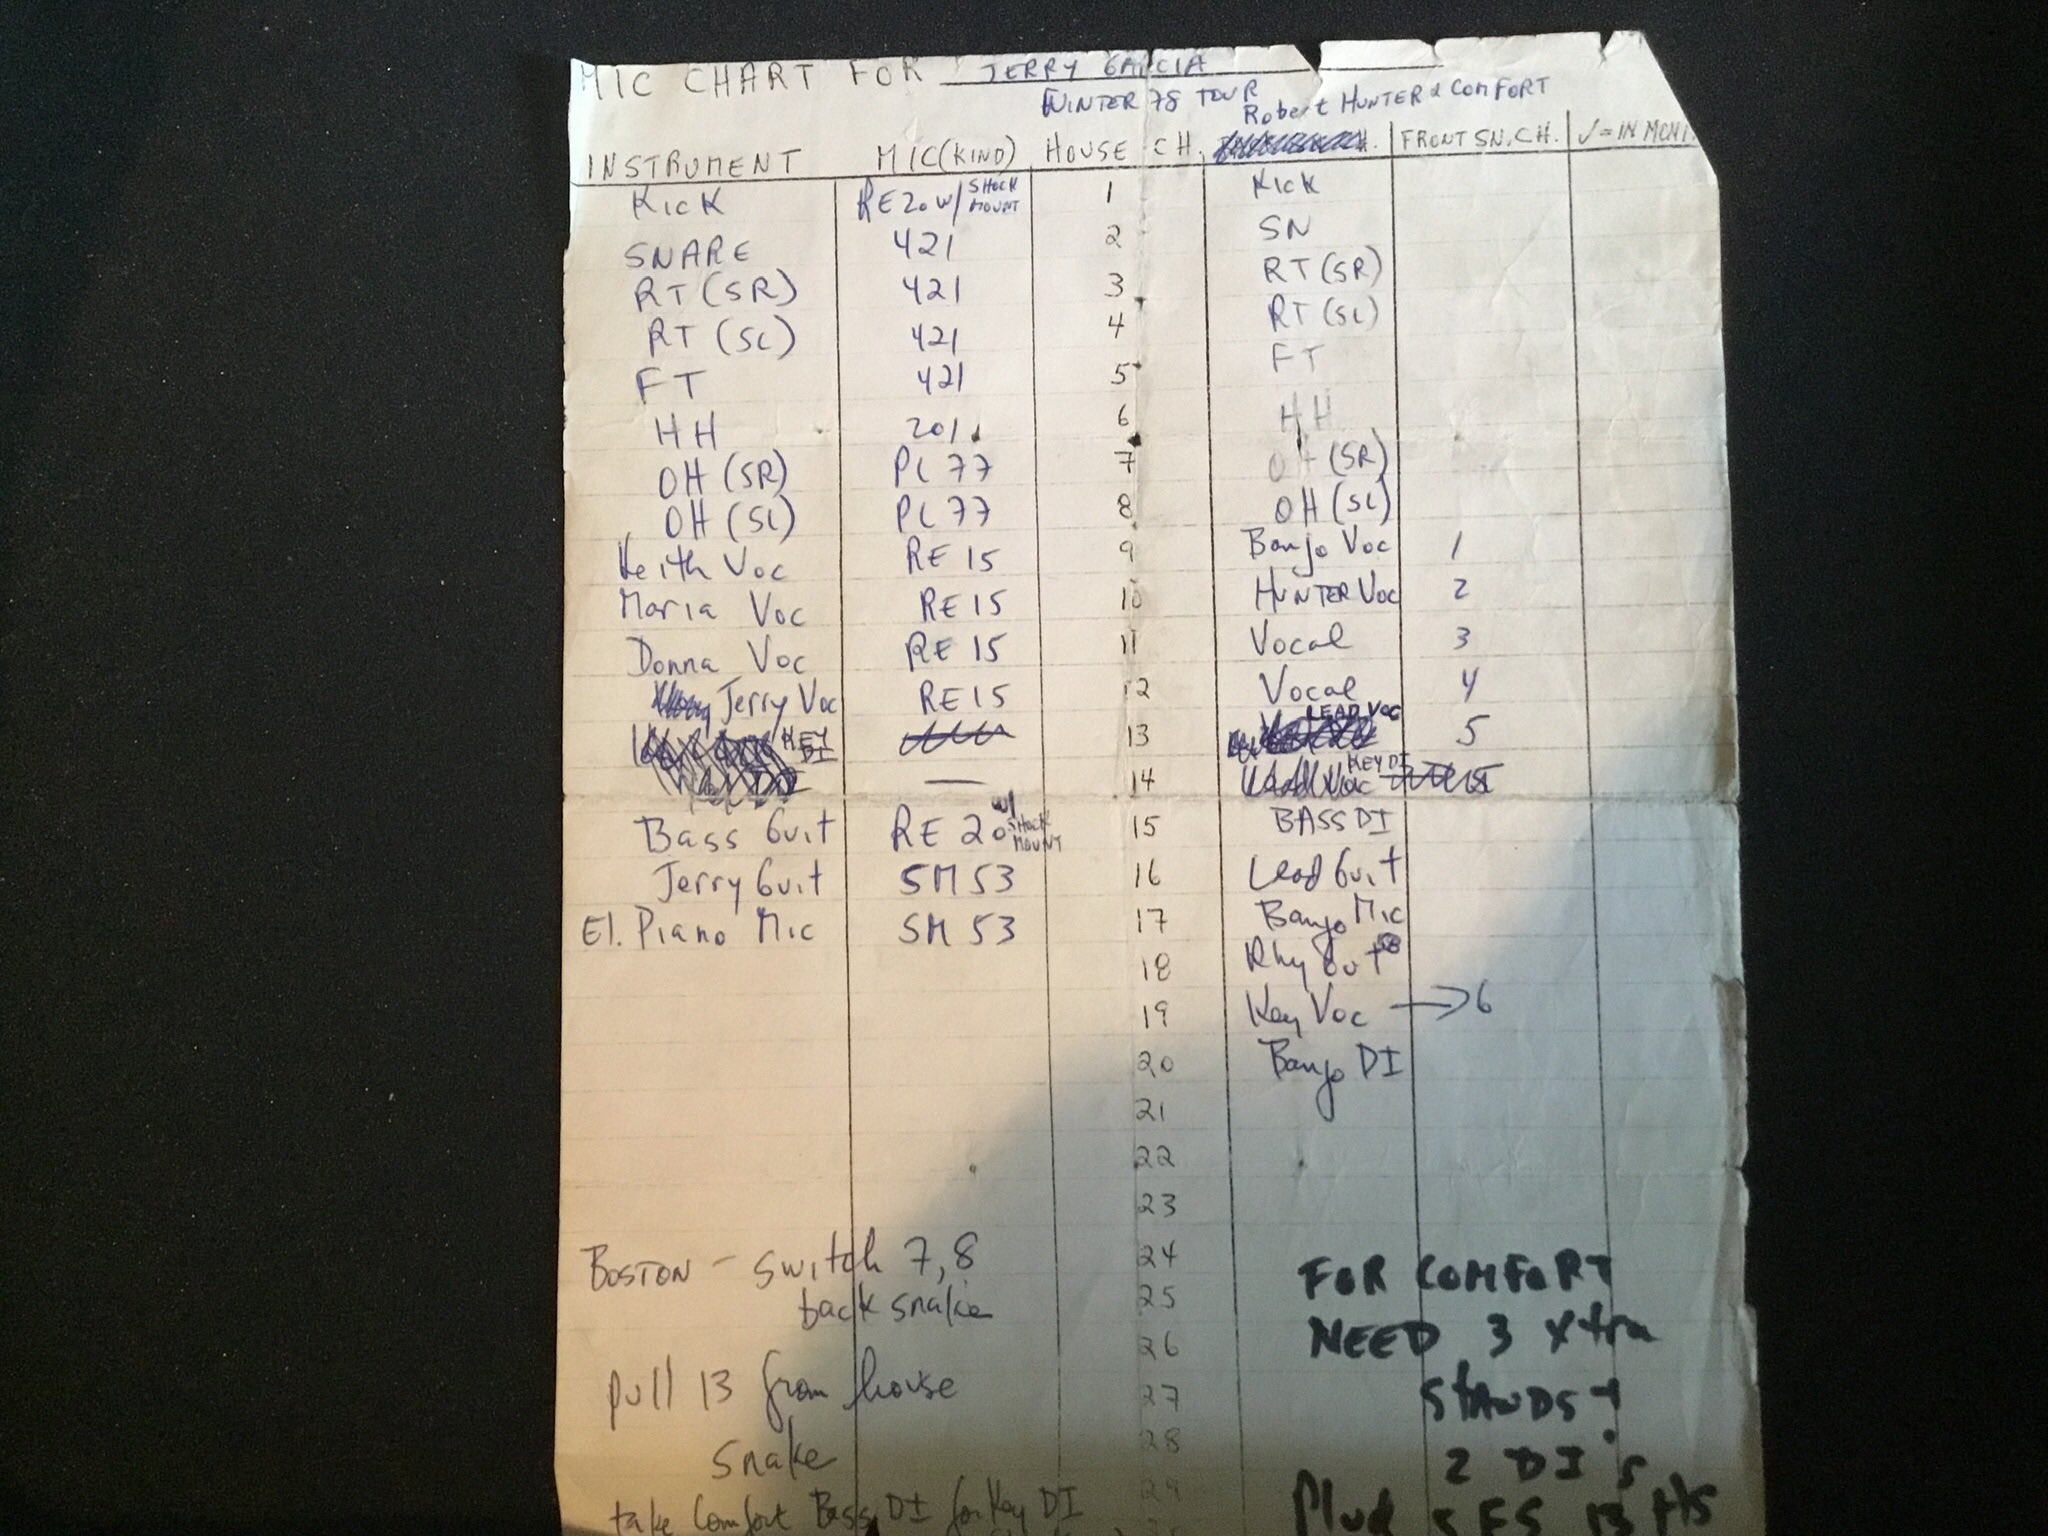 MIC CHART FOR JERRY GARCIA
WINTER 78 TOUR Robert HUNTER & COMFORT
INSTRUMENT MIC(KIND) HOUSE CH. FRONT SN. CH. √=IN MONI.
Kick RE20 w/ SHOCK MOUNT 1 Kick
SNARE 421 2 SN
RT (SR) 421 3 RT (SR)
RT (SL) 421 4 RT (SL)
FT 421 5 FT
HH 201 6 HH
OH (SR) PL 77 7 OH (SR)
OH (SL) PL 77 8 OH (SL)
Keith Voc RE 15 9 Banjo Voc 1
Maria Voc RE 15 10 HUNTER Voc 2
Donna Voc RE 15 11 Vocal 3
Jerry Voc RE 15 12 Vocal 4
KEY DI 13 LEAD VOC 5
— 14 KEY DI
Bass Guit RE 20 w/ SHOCK MOUNT 15 BASS DI
Jerry Guit SM 53 16 Lead Guit
El. Piano Mic SM 53 17 Banjo Mic
18 Rhy Guit
19 Key Voc → 6
20 Banjo DI
21
22
23
24
25
26
27
28
29
BOSTON - switch 7, 8
back snake
pull 13 from house
snake
take Comfort Bass DI for Key DI
FOR COMFORT
NEED 3 Xtra
STANDS +
2 DI's